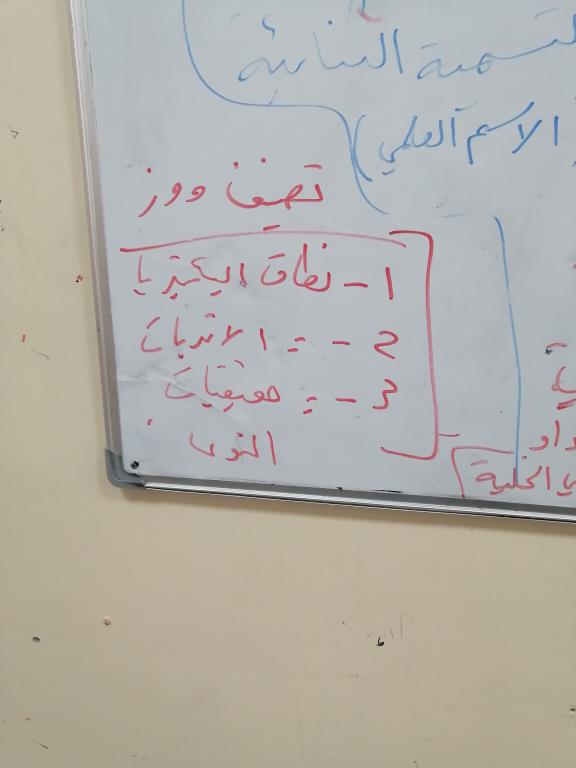 التسمية الثنائية
(الاسم العلمي)
تصنيف ووز
1 - نطاق البكتيريا
2 - = الاثريات
3 - = حقيقيات
النوى
ي الخلية